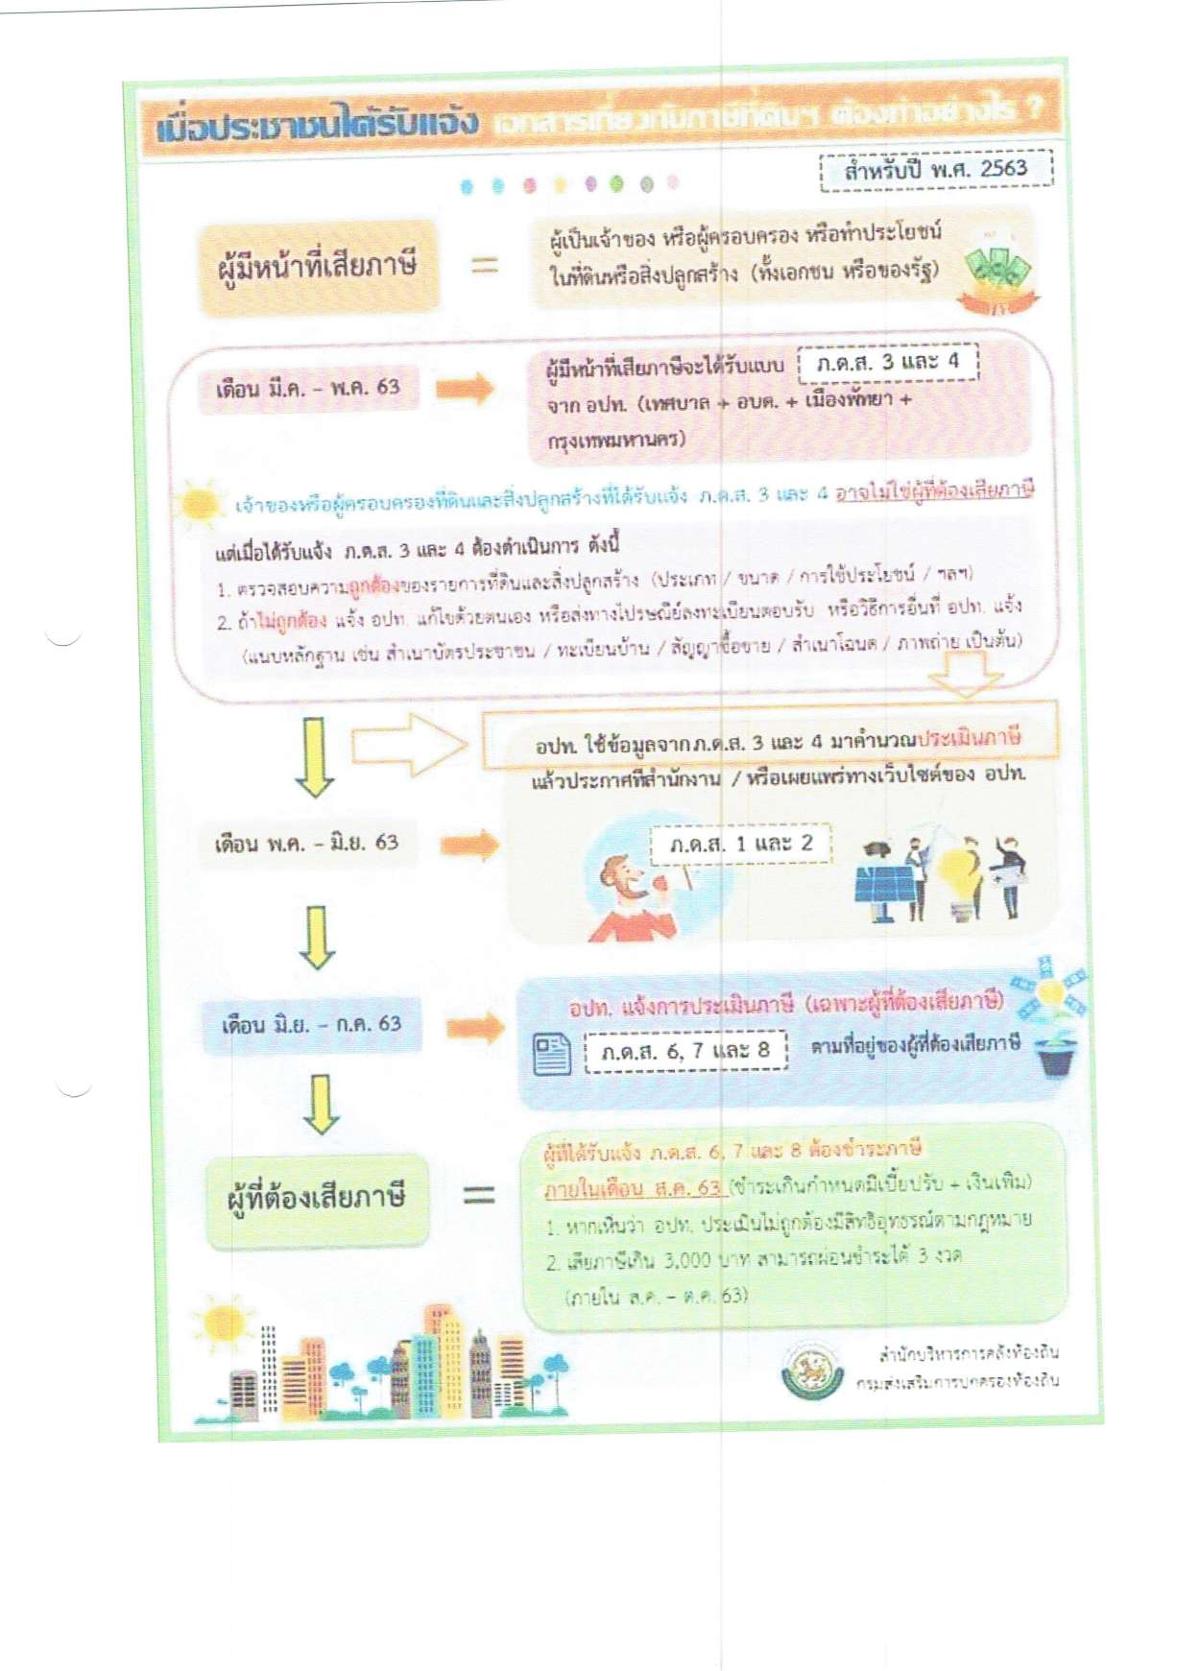 เมื่อประชาชนได้รับแจ้ง เอกสารเกี่ยวกับภาษีที่ดินฯ ต้องทำอย่างไร ?
สำหรับปี พ.ศ. 2563
ผู้มีหน้าที่เสียภาษี
=
ผู้เป็นเจ้าของ หรือผู้ครอบครอง หรือทำประโยชน์
ในที่ดินหรือสิ่งปลูกสร้าง (ทั้งเอกชน หรือของรัฐ)
เดือน มี.ค. - พ.ค. 63
ผู้มีหน้าที่เสียภาษีจะได้รับแบบ ภ.ด.ส. 3 และ 4
จาก อปท. (เทศบาล + อบต. + เมืองพัทยา +
กรุงเทพมหานคร)
เจ้าของหรือผู้ครอบครองที่ดินและสิ่งปลูกสร้างที่ได้รับแจ้ง ภ.ด.ส. 3 และ 4 อาจไม่ใช่ผู้ที่ต้องเสียภาษี
แต่เมื่อได้รับแจ้ง ภ.ด.ส. 3 และ 4 ต้องดำเนินการ ดังนี้
1. ตรวจสอบความถูกต้องของรายการที่ดินและสิ่งปลูกสร้าง (ประเภท / ขนาด / การใช้ประโยชน์ / ฯลฯ)
2. ถ้าไม่ถูกต้อง แจ้ง อปท. แก้ไขด้วยตนเอง หรือส่งทางไปรษณีย์ลงทะเบียนตอบรับ หรือวิธีการอื่นที่ อปท. แจ้ง
(แนบหลักฐาน เช่น สำเนาบัตรประชาชน / ทะเบียนบ้าน / สัญญาซื้อขาย / สำเนาโฉนด / ภาพถ่าย เป็นต้น)
อปท. ใช้ข้อมูลจากภ.ด.ส. 3 และ 4 มาคำนวณประเมินภาษี
แล้วประกาศที่สำนักงาน / หรือเผยแพร่ทางเว็บไซต์ของ อปท.
เดือน พ.ค. - มิ.ย. 63
ภ.ด.ส. 1 และ 2
เดือน มิ.ย. - ก.ค. 63
อปท. แจ้งการประเมินภาษี (เฉพาะผู้ที่ต้องเสียภาษี)
ภ.ด.ส. 6, 7 และ 8 ตามที่อยู่ของผู้ที่ต้องเสียภาษี
ผู้ที่ต้องเสียภาษี
=
ผู้ที่ได้รับแจ้ง ภ.ด.ส. 6, 7 และ 8 ต้องชำระภาษี
ภายในเดือน ส.ค. 63 (ชำระเกินกำหนดมีเบี้ยปรับ + เงินเพิ่ม)
1. หากเห็นว่า อปท. ประเมินไม่ถูกต้องมีสิทธิอุทธรณ์ตามกฎหมาย
2. เสียภาษีเกิน 3,000 บาท สามารถผ่อนชำระได้ 3 งวด
(ภายใน ส.ค. - ต.ค. 63)
สำนักบริหารการคลังท้องถิ่น
กรมส่งเสริมการปกครองท้องถิ่น